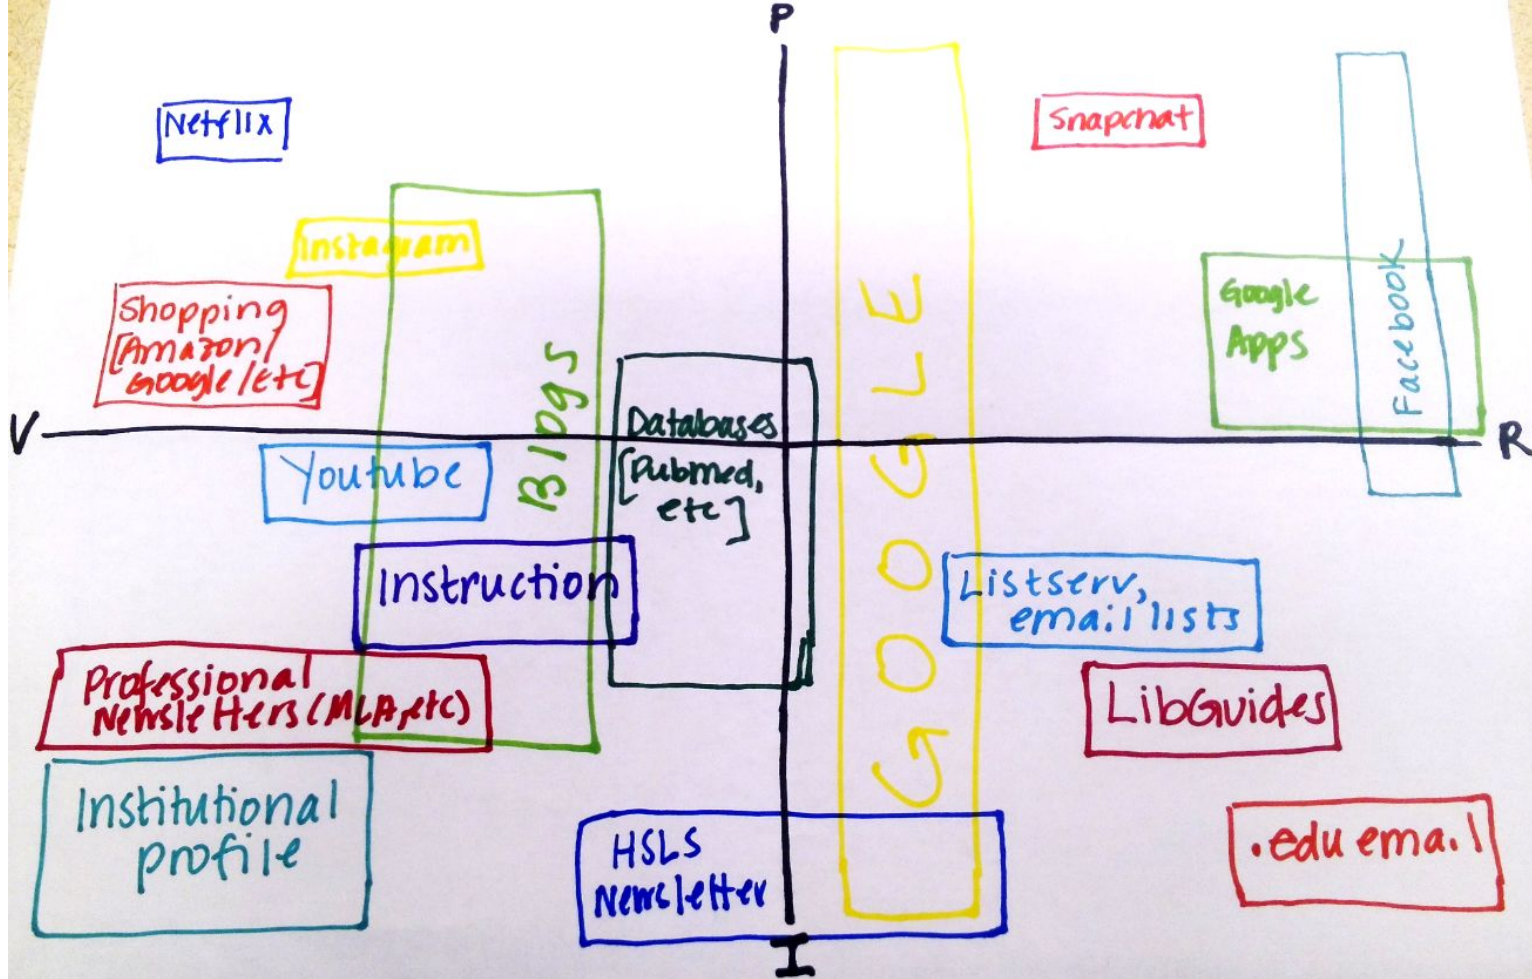 P
Netflix
Snapchat
Instagram
Shopping
[Amazon/
Google/etc]
Blogs
GOOGLE
Google
Apps
Facebook
V
R
Databases
[Pubmed,
etc]
Youtube
Instruction
Listserv,
email lists
Professional
Newsletters (MLA, etc)
LibGuides
Institutional
profile
HSLS
Newsletter
.edu email
I